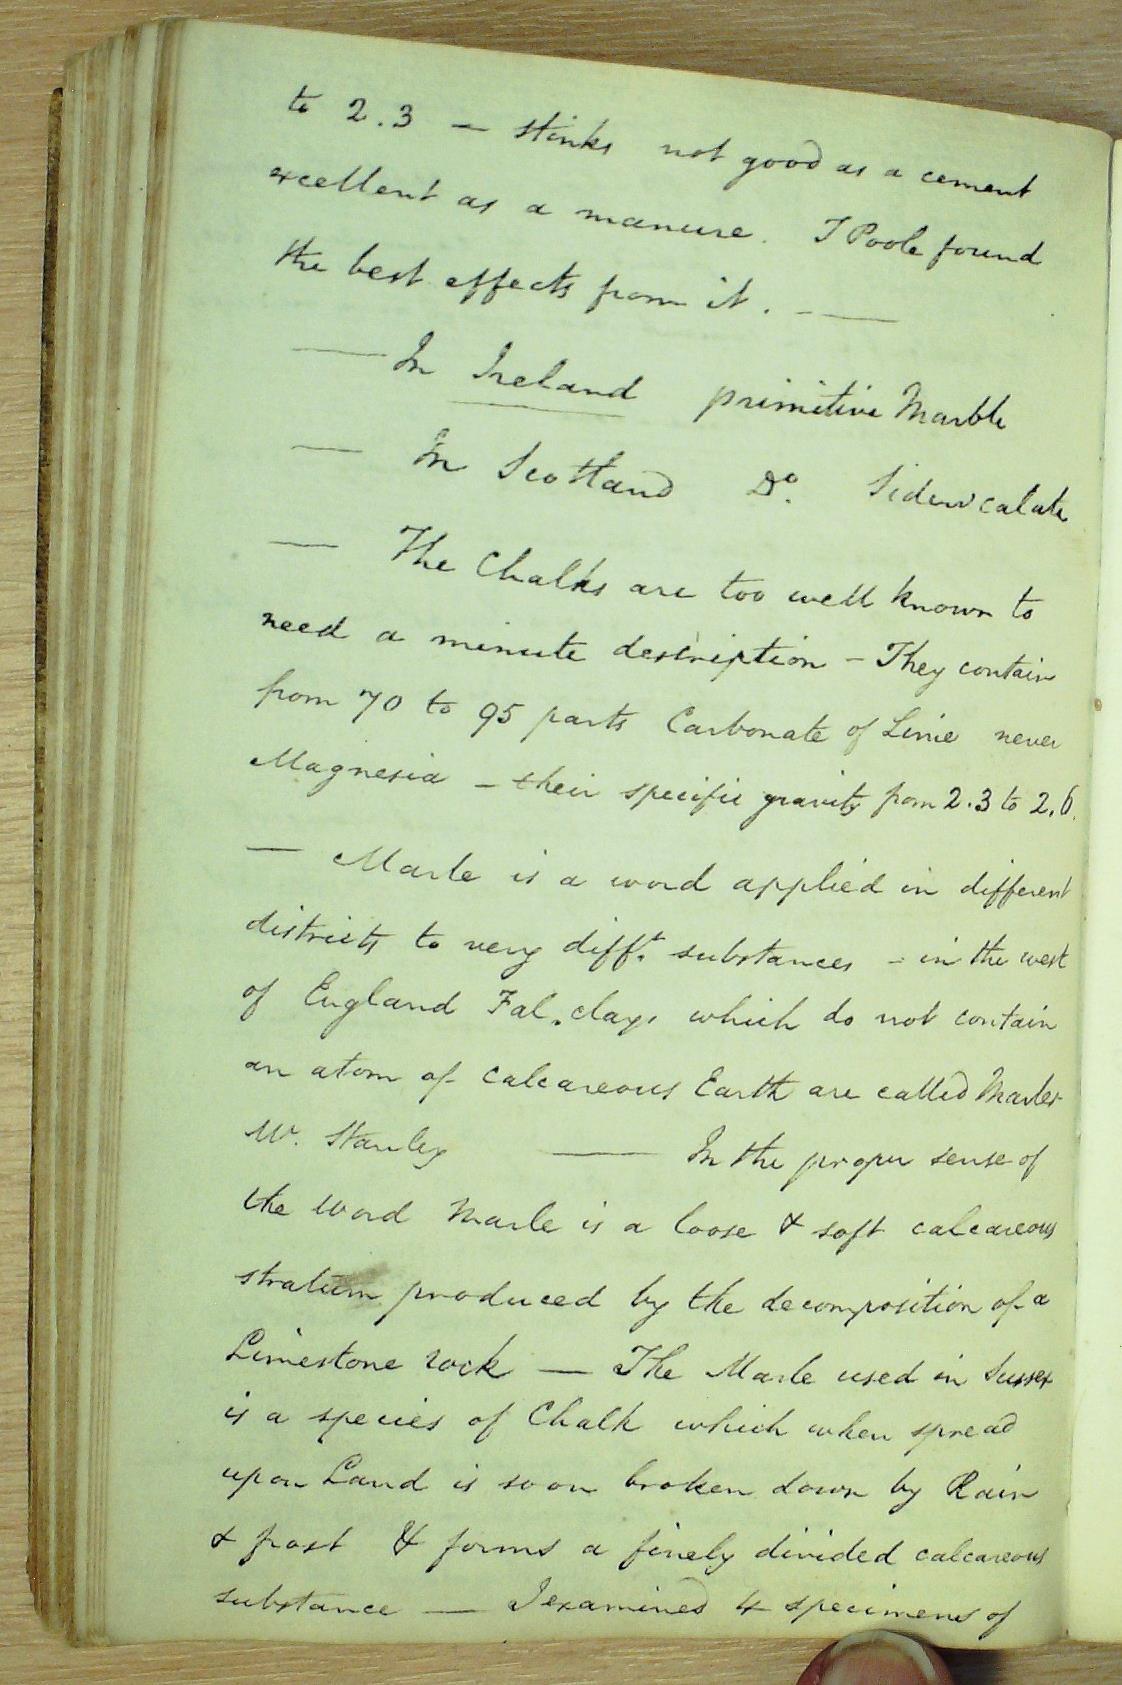 to 2.3 — stinks not good as a cement
excellent as a manure. T Poole found
the best effects from it. —
— In Ireland primitive Marble
— In Scotland Do.
— The Chalks are too well known to
need a minute description – They contain
from 70 to 95 parts Carbonate of Lime never
Magnesia – their specific gravity from 2.3 to 2.6.
— Marle is a word applied in different
districts to very difft. substances – in the west
of England Fal. clays which do not contain
an atom of calcareous Earth are called Marles
W. Stanley — In the proper sense of
the word Marle is a loose & soft calcareous
stratum produced by the decomposition of a
Limestone rock — The Marle used in Sussex
is a species of Chalk which when spread
upon Land is soon broken down by Rain
& frost & forms a finely divided calcareous
substance — I examined 4 specimens of